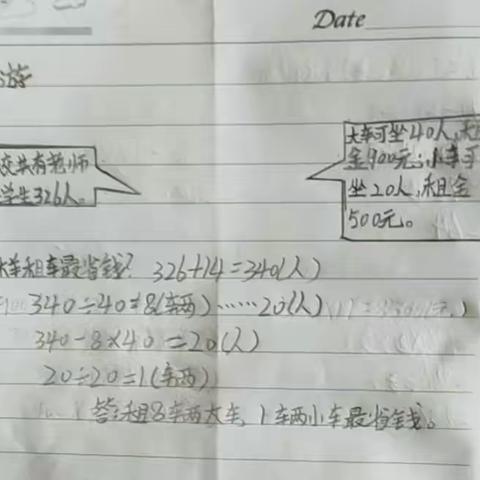 Date
游
校共有老师
学生326人。
大车可坐40人,租
金900元;小车可
坐20人,租金
500元。
样租车最省钱? 326+14=340(人)
340÷40=8(车两)……20(人)
340-8×40=20(人)
20÷20=1(车两)
答:租8车两大车,1车两小车最省钱。